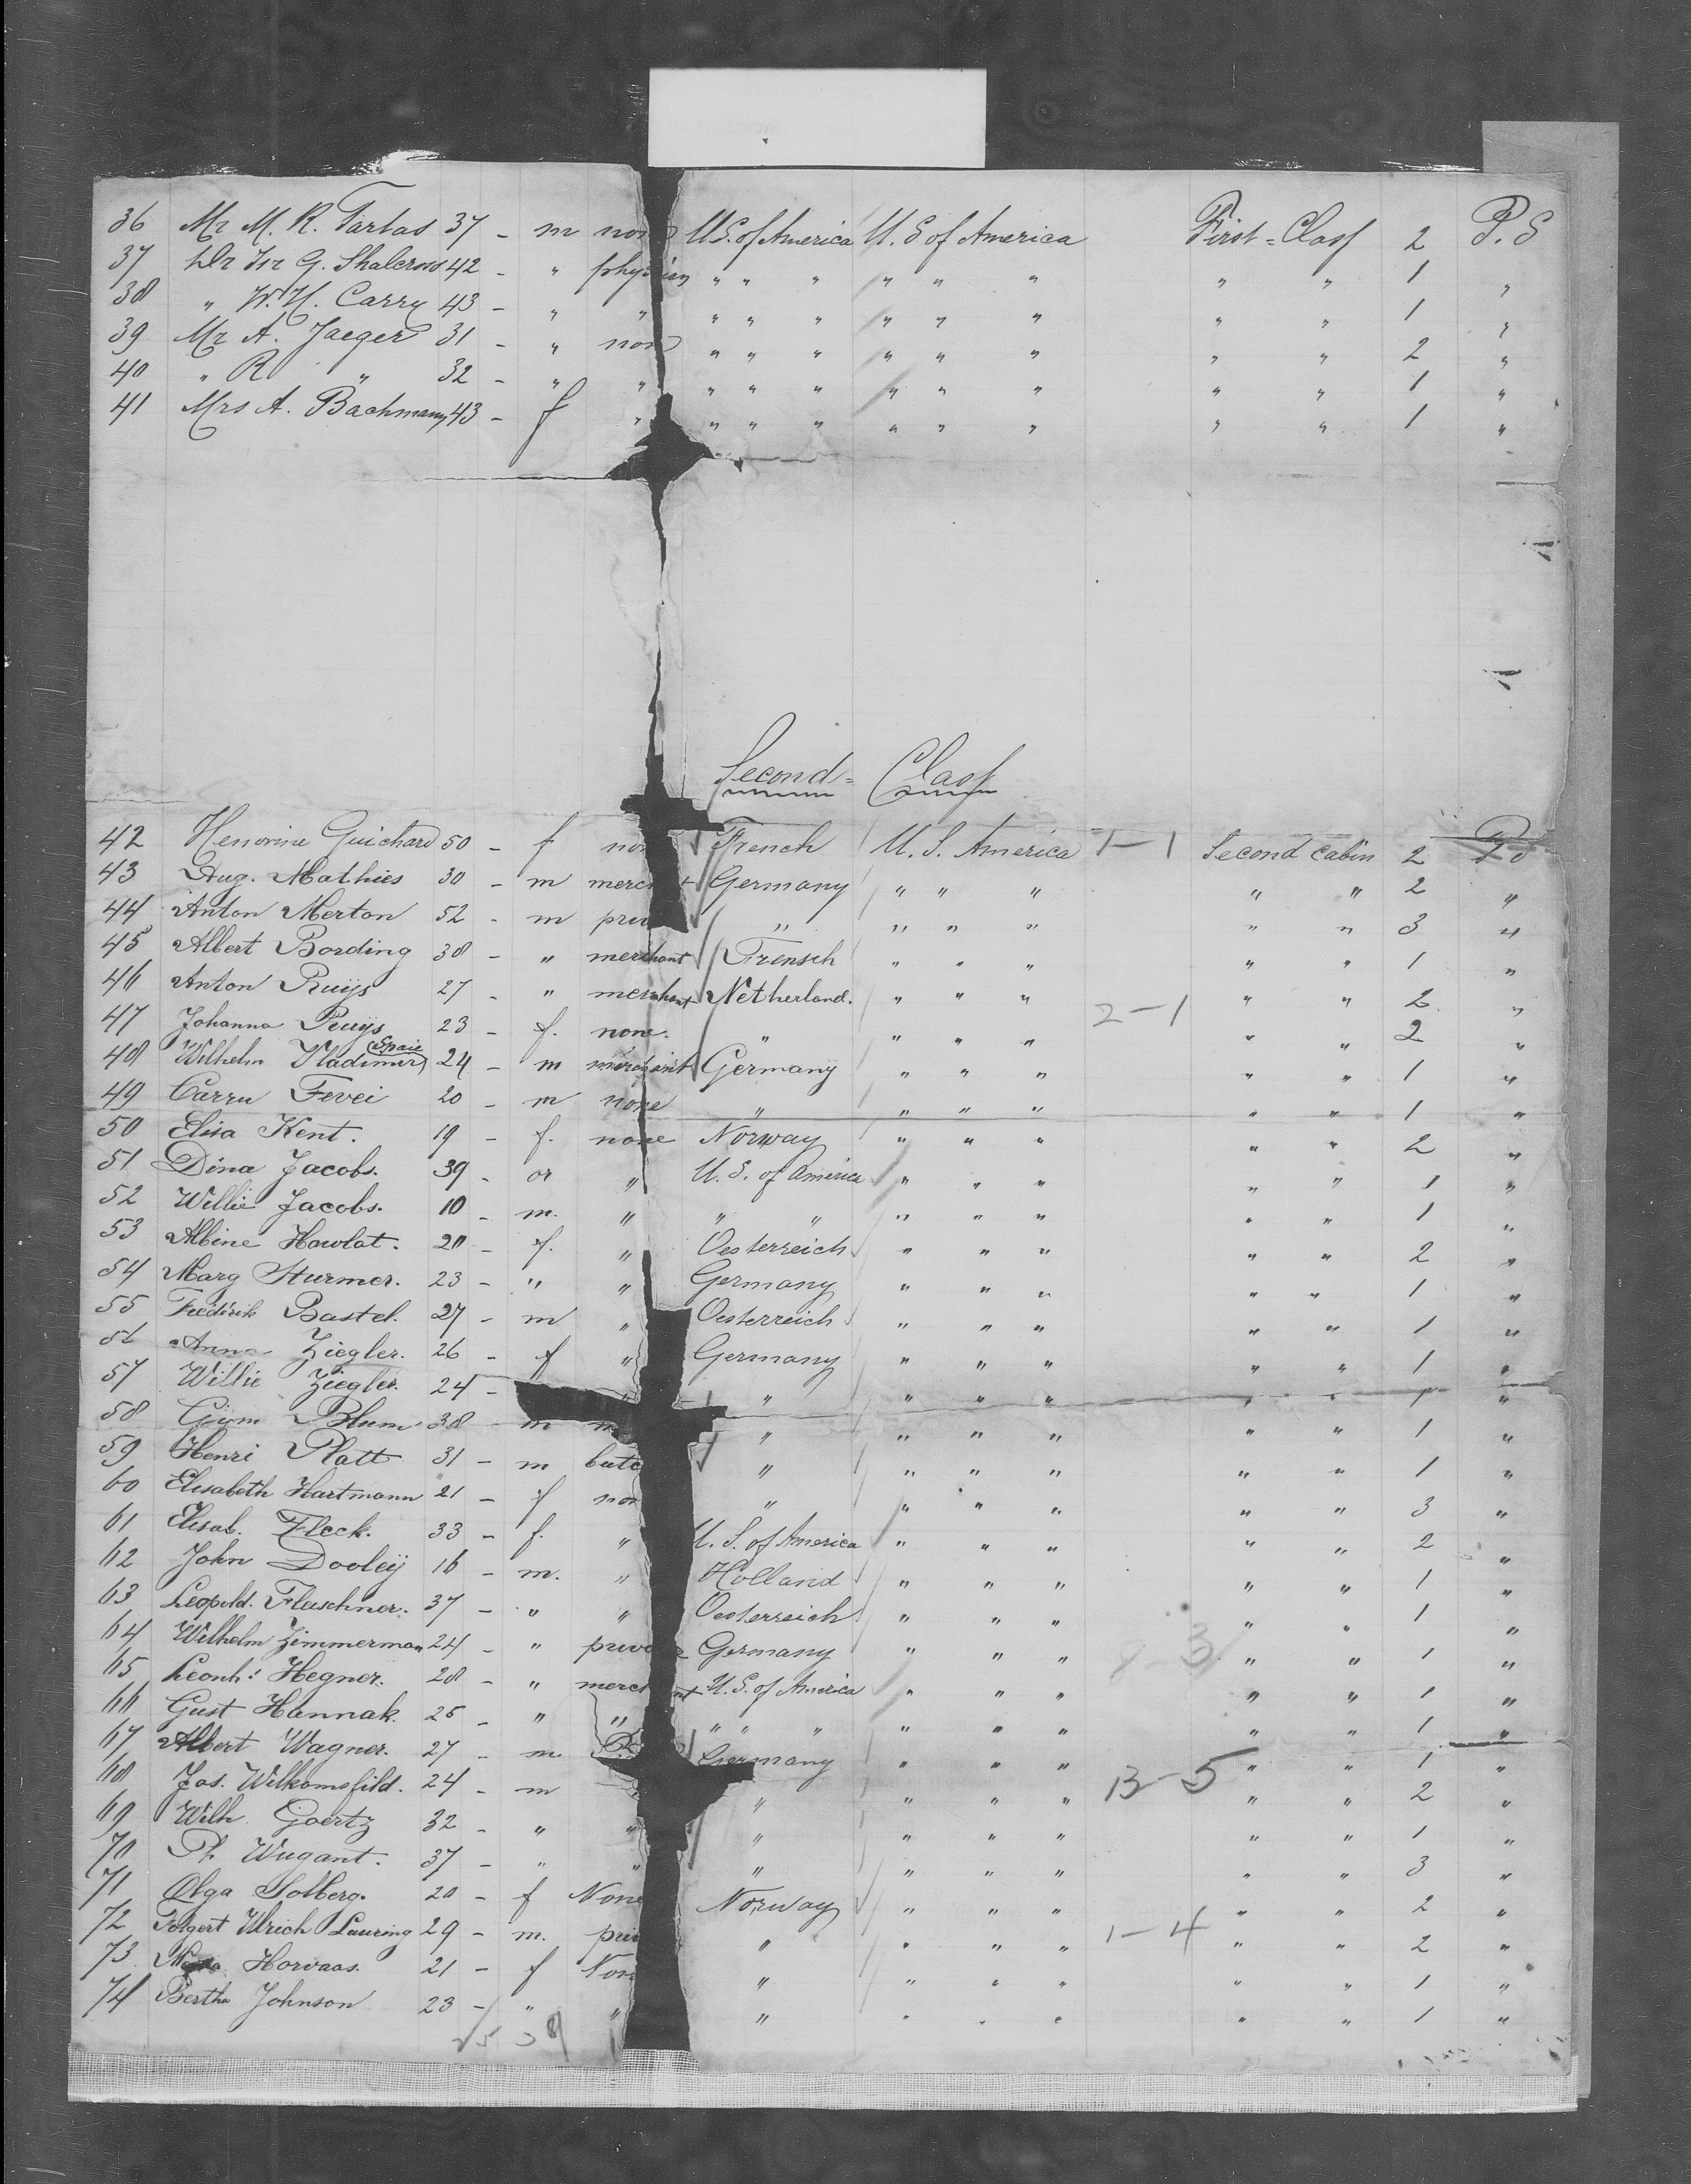 36 Mr M. R. Tarlas 37 - m non U.S. of America U. S of America First=Class 2 P. S
37 Dr G. Shalcross 42 - " phy " " " " " " " " 1 "
38 " W. H. Carry 43 - " " " " " " " " " " 1 "
39 Mr A. Jaeger 31 - " non " " " " " " " " 2 "
40 " R " 32 - " " " " " " " " " " 1 "
41 Mrs A. Bachmann 43 - f " " " " " " " " " 1 "
Second= Class
42 Henorine Guichard 50 - f non French U. S. America 1-1 Second Cabin 2
43 Aug. Mathies 30 - m merc Germany " " " " " 2 "
44 Anton Merton 52 - m priv " " " " " " 3 "
45 Albert Bording 38 - " merchant Frensch " " " " " 1 "
46 Anton Ruijs 27 - " merchant Netherland. " " " " " 2 "
47 Johanna Ruijs 23 - f. none. " " " " 2-1 " " 2 "
48 Wilhelm Vladimer 24 - m merchant Germany " " " " " 1 "
49 Carru Fevei 20 - m none " " " " " " 1 "
50 Elisa Kent. 19 - f. none Norway " " " " " 2 "
51 Dina Jacobs. 39 - or " U. S. of America " " " " " 1 "
52 Willie Jacobs. 10 - m. " " " " " " " " 1 "
53 Albine Hawlat. 20 - f. " Oesterreich " " " " " 2 "
54 Marg Sturmer. 23 - " " Germany " " " " " 1 "
55 Fredirik Bastel. 27 - m " Oesterreich " " " " " 1 "
56 Anna Ziegler. 26 - f " Germany " " " " " 1 "
57 Willie Ziegler. 24 - " " " " " " 1 "
58 Blum 38 - m " " " " " " 1 "
59 Henri Platt 31 - m butc " " " " " " 1 "
60 Elisabeth Hartmann 21 - f non " " " " " " 3 "
61 Elisab. Fleck. 33 - f. " U. S. of America " " " " " 2 "
62 John Dooleij 16 - m. " Holland " " " " " 1 "
63 Leopold. Fleischner. 37 - " " Oesterreich " " " " " 1 "
64 Wilhelm Zimmerman 24 - " priv Germany " " " 3 " " 1 "
65 Leonh: Hegner. 28 - " merc nt U.S. of America " " " " " 1 "
66 Gust Hannak. 25 - " " " " " " " " " " 1 "
67 Albert Wagner. 27 - m. Germany " " " " " 1 "
68 Jos. Wilkomsfild. 24 - m " " " " 13-5 " " 2 "
69 Wilh. Goertz 32 - " " " " " " " " 1 "
70 Ph Wugant. 37 - " " " " " " " " 3 "
71 Olga Solberg. 20 - f None Norway " " " " " 2 "
72 Ulrich Lauring 29 - m. priv " " " " 1-4 " " 2 "
73 Horvaas. 21 - f Non " " " " " " 1 "
74 Bertha Johnson 23 - " " " " " " " " 1 "